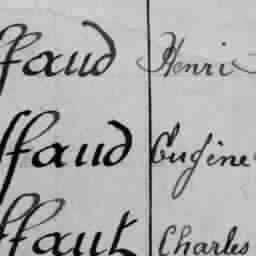 ffaud Henri
ffaud Eugène
ffaut Charles